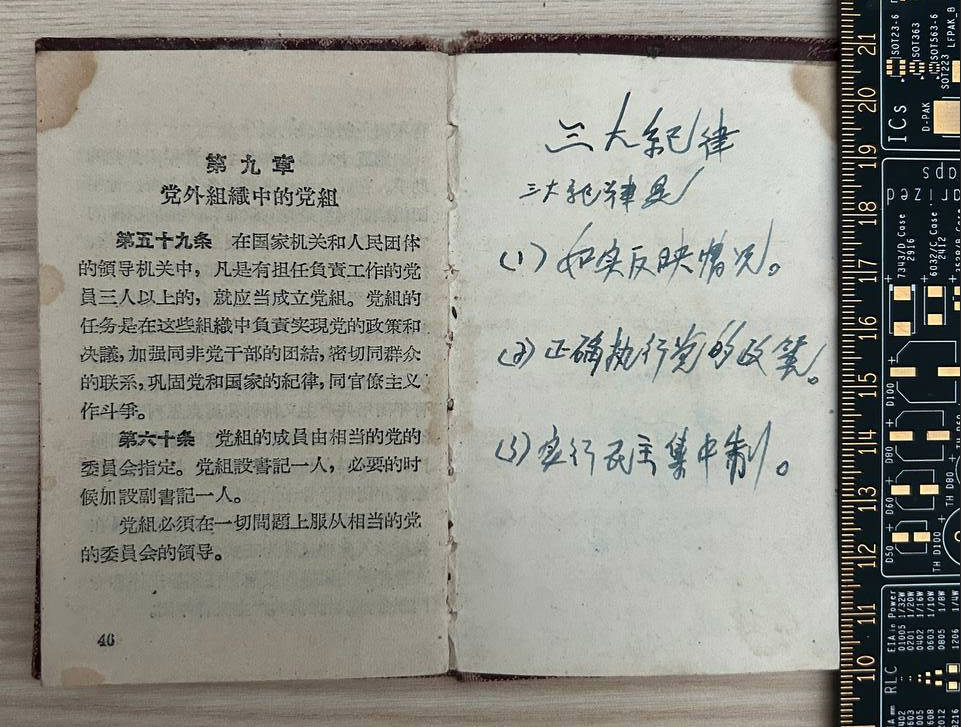 第九章
党外組織中的党組
第五十九条 在国家机关和人民团体
的領导机关中，凡是有担任負責工作的党
員三人以上的，就应当成立党組。党組的
任务是在这些組織中負責实現党的政策和
决議，加强同非党干部的团結，密切同群众
的联系，巩固党和国家的紀律，同官僚主义
作斗爭。
第六十条 党組的成員由相当的党的
委員会指定。党組設書記一人，必要的时
候加設副書記一人。
党組必須在一切問題上服从相当的党
的委員会的領导。
46
三大紀律
三大紀律是
(1) 如实反映情况。
(2) 正确执行党的政策。
(3) 实行民主集中制。
21
20
19
18
17
16
15
14
13
12
11
10
SOT23-6
SOT363
SOT563-6
SOT223
LFPAK_B
ICs
D-PAK
7343/D_Case
2916
6032/C_Case
2412
D100
D80
D60
D50
TH D80
TH D100
RLC
EIA in
Power
01005 1/32W
0201 1/20W
0402 1/16W
0603 1/10W
0805 1/8W
1206 1/4W